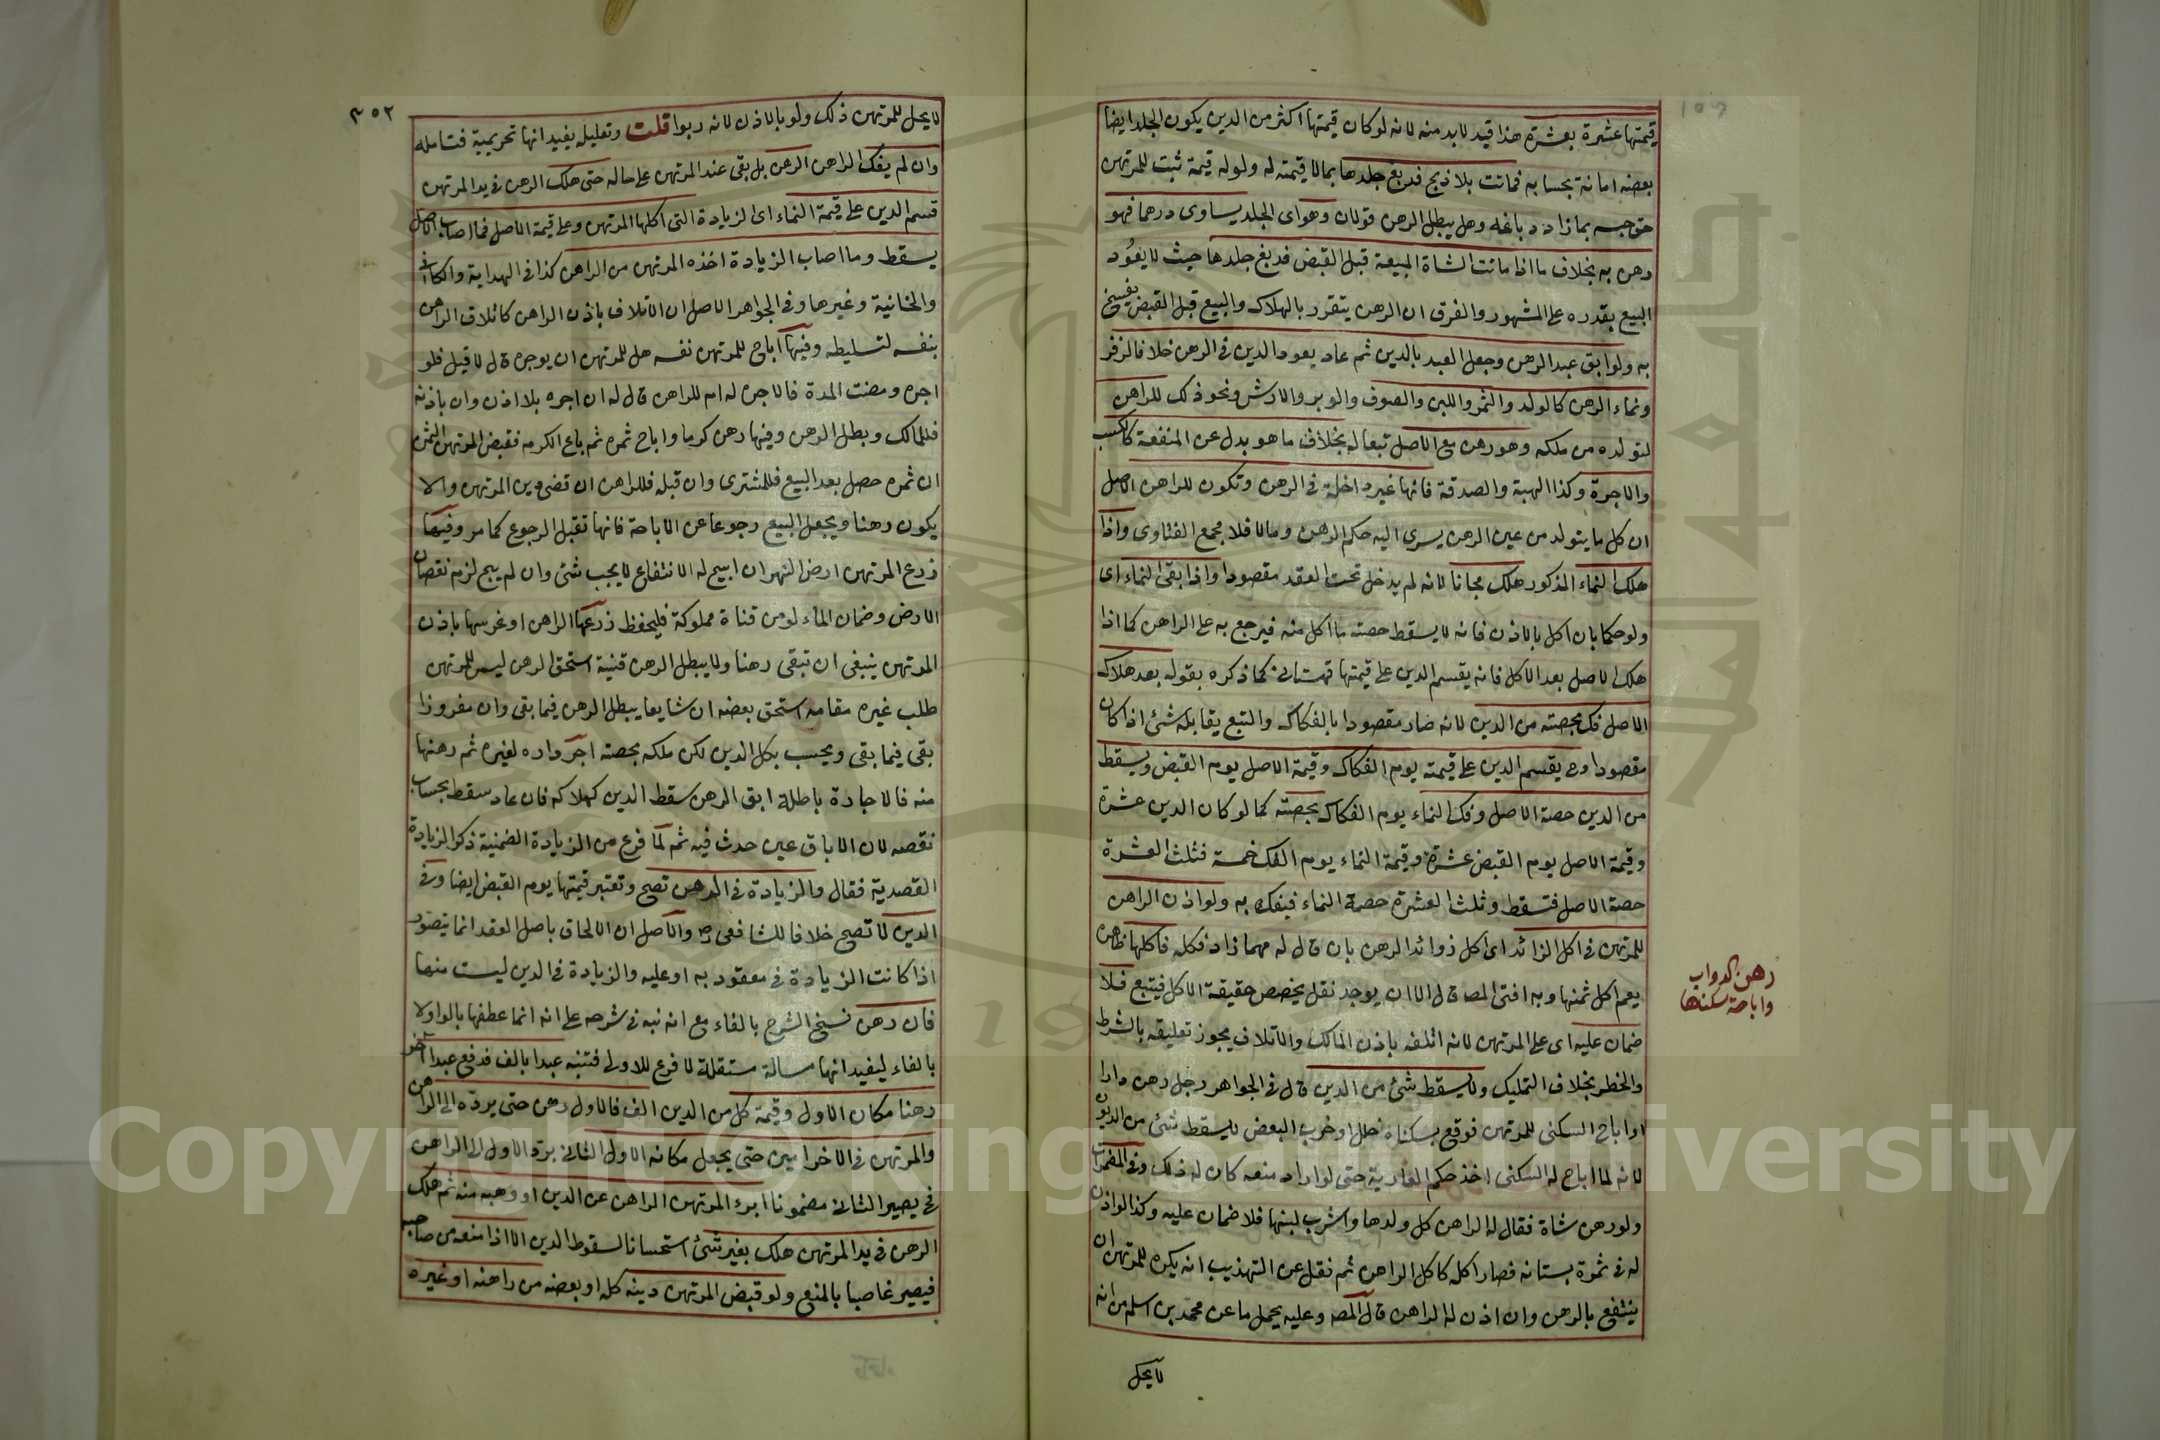 قيمتها عشرة بعشرة هذا قيد لابد منه لانه لو كان قيمتها اكثر من الدين يكون الجلد ايضا
بعضه امانة بحسابه فماتت بلا ذبح فدبغ جلدها بما لا قيمته له ولو له قيمة ثبت للمرتهن
حق حبسه بما زاد دباغه وهل يبطل الرهن قولان وهو اى الجلد يساوى درهما فهو
رهن به بخلاف ما اذا ماتت الشاة المبيعة قبل القبض فدبغ جلدها حيث لا يعود
البيع بقدره على المشهور والفرق ان الرهن يتقرر بالهلاك والبيع قبل القبض يفسخ
به ولو ابق عبد الرهن وجعل العبد بالدين ثم عاد يعود الدين فى الرهن خلافا لزفر
ونماء الرهن كالولد والثمر واللبن والصوف والوبر والارش ونحو ذلك للراهن
لتولده من ملكه وهو رهن مع الاصل تبعا له بخلاف ما هو بدل عن المنفعة كالكسب
والاجرة وكذا الهبة والصدقة فانها غير داخلة فى الرهن وتكون للراهن الاصل
ان كل ما يتولد من عين الرهن يسرى اليه حكم الرهن وما لا فلا مجمع الفتاوى واذا
هلك النماء المذكور هلك مجانا لانه لم يدخل تحت العقد مقصودا واذا بقى النماء اى
ولو حكما بان اكل بالاذن فانه لا يسقط حصته ما اكل منه فيرجع به على الراهن كما اذا
هلك الاصل بعد الاكل فانه يقسم الدين على قيمتها قهستانى كما ذكره بقوله بعد هلاك
الاصل فك بحصته من الدين لانه صار مقصودا بالفكاك والتبع يقابله شئ اذا كان
مقصودا وح يقسم الدين على قيمته يوم الفكاك وقيمة الاصل يوم القبض ويسقط
من الدين حصة الاصل وفك النماء يوم الفكاك بحصته كما لو كان الدين عشرة
وقيمة الاصل يوم القبض عشرة وقيمة النماء يوم الفك خمسة فثلث العشرة
حصة الاصل فتسقط وثلث العشرة حصة النماء فيفك به ولو اذن الراهن
للمرتهن فى اكل الزائد اى اكل زوائد الرهن بان قال له مهما زاد فكله فاكلها ظاهره
يعم اكل ثمنها وبه افتى المص قال الا ان يوجد نقل يخصص حقيقة الاكل فيتبع فلا
ضمان عليه اى على المرتهن لانه اتلفه باذن المالك والاتلاف يجوز تعليقه بالشرط
والخطر بخلاف التمليك ولا يسقط شئ من الدين قال فى الجواهر رجل رهن دارا
واباح السكنى للمرتهن فوقع بسكناه خلل او خرب البعض لا يسقط شئ من الديون
لانه لما اباح له السكنى اخذ حكم العارية حتى لو اراد منعه كان له ذلك وفى المضمرات
ولو رهن شاة فقال له الراهن كل ولدها واشرب لبنها فلا ضمان عليه وكذا لو اذن
له فى ثمرة بستانه فصار اكله كاكل الراهن ثم نقل عن التهذيب انه يكره للمرتهن ان
ينتفع بالرهن وان اذن له الراهن قال المصـ وعليه يحمل ما عن محمد بن اسلم من انه
لا يحل
رهن الدواب
واباحة سكنها
٣٥٢
لا يحل للمرتهن ذلك ولو بالاذن لانه ربوا قلت وتعليله يفيد انها تحريمية فتامله
وان لم يفك الراهن الرهن بل بقى عند المرتهن على حاله حتى هلك الرهن فى يد المرتهن
قسم الدين على قيمة النماء اى الزيادة التى اكلها المرتهن وعلى قيمة الاصل فما اصاب الاصل
يسقط وما اصاب الزيادة اخذه المرتهن من الراهن كذا فى الهداية والكافى
والخانية وغيرها وفى الجواهر الاصل ان الاتلاف باذن الراهن كاتلاف الراهن
بنفسه لتسليطه وفيها اباح للمرتهن نفسه هل للمرتهن ان يوجره قال لا قيل فلو
اجره ومضت المدة فالاجرة له ام للراهن قال له ان اجره بلا اذن وان باذنه
فللمالك وبطل الرهن وفيها رهن كرما واباح ثمره ثم باع الكرم فقبض المرتهن الثمن
ان ثمره حصل بعد البيع فللمشترى وان قبله فللراهن ان قضى دين المرتهن والا
يكون رهنا ويجعل البيع رجوعا عن الاباحة فانها تقبل الرجوع كما مر وفيها
زرع المرتهن ارض النهر ان ابيح له الانتفاع لا يجب شئ وان لم يبح لزم نقصان
الارض وضمان الماء لو من قناة مملوكة فليحفظ زرعها الراهن او غرسها باذن
المرتهن ينبغى ان تبقى رهنا ولا يبطل الرهن قنية استحق الرهن ليس للمرتهن
طلب غيره مقامه استحق بعضه ان شايعا يبطل الرهن فيما بقى وان مفروزا
بقى فيما بقى ويحبس بكل الدين لكن ملكه بحصته اجر داره لغيره ثم رهنها
منه فالاجارة باطلة ابق الرهن سقط الدين كهلاكه فان عاد سقط بحساب
نقصه لان الاباق عيب حدث فيه ثم لما فرغ من الزيادة الضمنية ذكر الزيادة
القصدية فقال والزيادة فى الرهن تصح وتعتبر قيمتها يوم القبض ايضا وفى
الدين لا تصح خلافا للشافعى والاصل ان الالحاق باصل العقد انما يتصور
اذا كانت الزيادة فى معقود به او عليه والزيادة فى الدين ليست منها
فان رهن نسخ الشرح بالفاء مع انه نبه فى شرحه على انه انما عطفها بالواو لا
بالفاء ليفيد انها مسالة مستقلة لا فرع للاولى فتنبه عبدا بالف فدفع عبدا آخر
رهنا مكان الاول وقيمة كل من الدين الف فالاول رهن حتى يرده الى الراهن
والمرتهن فى الاخر امين حتى يجعل مكانه الاول الثانى برد الاول الى الراهن
فح يصير الثانى مضمونا ابرء المرتهن الراهن عن الدين او وهبه منه ثم هلك
الرهن فى يد المرتهن هلك بغير شئ استحسانا لسقوط الدين الا اذا منعه من صاحبه
فيصير غاصبا بالمنع ولو قبض المرتهن دينه كله او بعضه من راهنه او غيره
Copyright © King Saud University